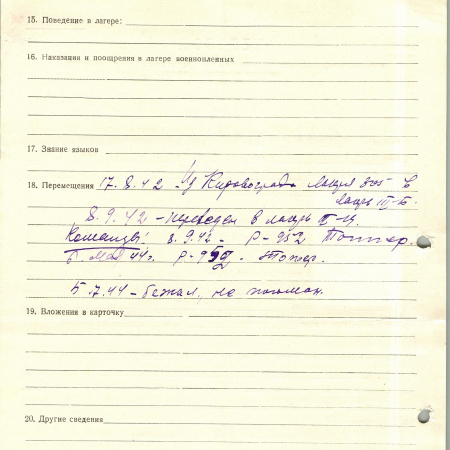 15. Поведение в лагере:
16. Наказания и поощрения в лагере военнопленных
17. Знание языков
18. Перемещения 17.8.42 - Из Кировограда лагеря 305 - в
лагерь III-B.
8.9.42 - переведен в лагерь
Команды: 8.9.42 - Р-952
6. мая 44г. Р-952 -
5.7.44 - бежал, не пойман.
19. Вложения в карточку
20. Другие сведения